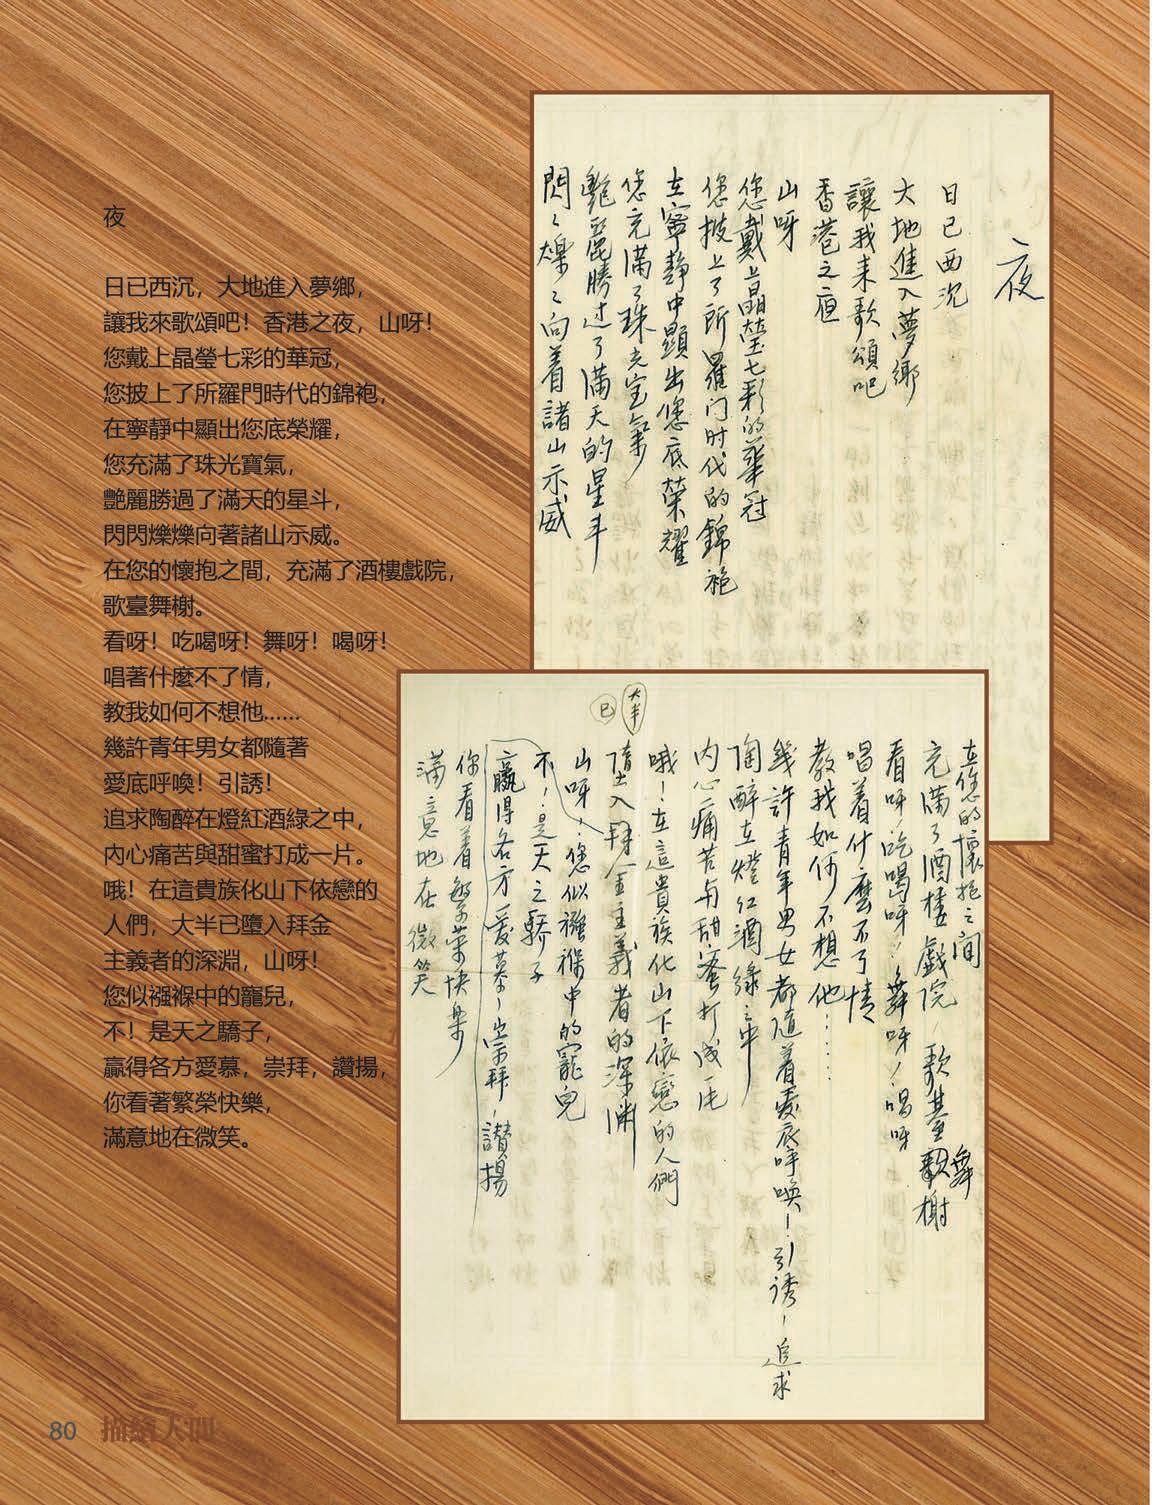 夜
日已西沉，大地進入夢鄉，
讓我來歌頌吧！香港之夜，山呀！
您戴上晶瑩七彩的華冠，
您披上了所羅門時代的錦袍，
在寧靜中顯出您底榮耀，
您充滿了珠光寶氣，
艷麗勝過了滿天的星斗，
閃閃爍爍向著諸山示威。
在您的懷抱之間，充滿了酒樓戲院，
歌臺舞榭。
看呀！吃喝呀！舞呀！喝呀！
唱著什麼不了情，
教我如何不想他……
幾許青年男女都隨著
愛底呼喚！引誘！
追求陶醉在燈紅酒綠之中，
內心痛苦與甜蜜打成一片。
哦！在這貴族化山下依戀的
人們，大半已墮入拜金
主義者的深淵，山呀！
您似襁褓中的寵兒，
不！是天之驕子，
贏得各方愛慕，崇拜，讚揚，
你看著繁榮快樂，
滿意地在微笑。
夜
日已西沉
大地進入夢鄉
讓我来歌頌吧
香港之夜
山呀
您戴上晶瑩七彩的華冠
您披上了所羅门时代的錦袍
在寧静中顯出您底榮耀
您充滿了珠光宝氣
艷麗勝过了滿天的星斗
閃々爍々向着諸山示威
在您的懷抱之間
充滿了酒樓戲院，歌臺舞榭
看呀吃喝呀！舞呀！喝呀
唱着什麼不了情
教我如何不想他……
幾許青年男女都随着爱底呼唤！引誘！追求
陶醉在燈红酒綠之中
内心痛苦与甜蜜打成一片
哦！在這貴族化山下依戀的人們
大半
已
墮入拜金主義者的深渊
山呀！您似襁褓中的寵兒
不！是天之驕子
贏得各方爱慕，崇拜，讃揚
你看着繁荣快樂
滿意地在微笑
80